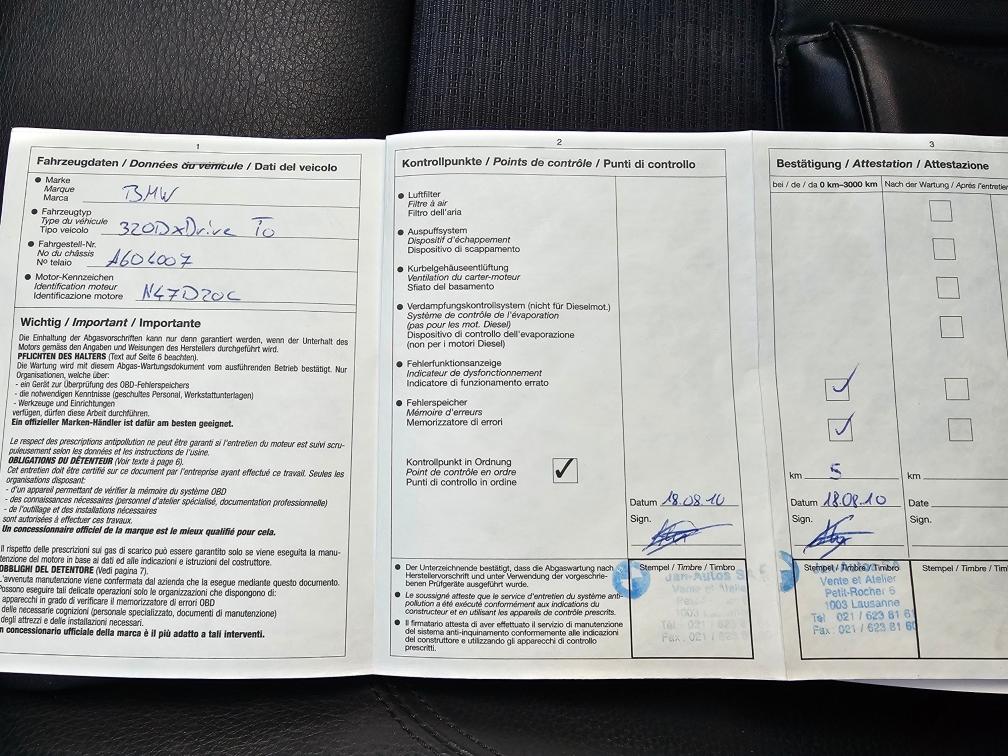 1
Fahrzeugdaten / Données du véhicule / Dati del veicolo
● Marke
Marque
Marca BMW
● Fahrzeugtyp
Type du véhicule
Tipo veicolo 320DxDrive To
● Fahrgestell-Nr.
No du châssis
Nº telaio A604007
● Motor-Kennzeichen
Identification moteur
Identificazione motore N47D20C
Wichtig / Important / Importante
Die Einhaltung der Abgasvorschriften kann nur dann garantiert werden, wenn der Unterhalt des
Motors gemäss den Angaben und Weisungen des Herstellers durchgeführt wird.
PFLICHTEN DES HALTERS (Text auf Seite 6 beachten).
Die Wartung wird mit diesem Abgas-Wartungsdokument vom ausführenden Betrieb bestätigt. Nur
Organisationen, welche über:
- ein Gerät zur Überprüfung des OBD-Fehlerspeichers
- die notwendigen Kenntnisse (geschultes Personal, Werkstattunterlagen)
- Werkzeuge und Einrichtungen
verfügen, dürfen diese Arbeit durchführen.
Ein offizieller Marken-Händler ist dafür am besten geeignet.
Le respect des prescriptions antipollution ne peut être garanti si l'entretien du moteur est suivi scru-
puleusement selon les données et les instructions de l'usine.
OBLIGATIONS DU DÉTENTEUR (Voir texte à page 6).
Cet entretien doit être certifié sur ce document par l'entreprise ayant effectué ce travail. Seules les
organisations disposant:
- d'un appareil permettant de vérifier la mémoire du système OBD
- des connaissances nécessaires (personnel d'atelier spécialisé, documentation professionnelle)
- de l'outillage et des installations nécessaires
sont autorisées à effectuer ces travaux.
Un concessionnaire officiel de la marque est le mieux qualifié pour cela.
Il rispetto delle prescrizioni sui gas di scarico può essere garantito solo se viene eseguita la manu-
tenzione del motore in base ai dati ed alle indicazioni e istruzioni del costruttore.
OBBLIGHI DEL DETENTORE (Vedi pagina 7).
L'avvenuta manutenzione viene confermata dal azienda che la esegue mediante questo documento.
Possono eseguire tali delicate operazioni solo le organizzazioni che dispongono di:
apparecchi in grado di verificare il memorizzatore di errori OBD
delle necessarie cognizioni (personale specializzato, documenti di manutenzione)
degli attrezzi e delle installazioni necessari.
n concessionario ufficiale della marca è il più adatto a tali interventi.
2
Kontrollpunkte / Points de contrôle / Punti di controllo
● Luftfilter
Filtre à air
Filtro dell'aria
● Auspuffsystem
Dispositif d'échappement
Dispositivo di scappamento
● Kurbelgehäuseentlüftung
Ventilation du carter-moteur
Sfiato del basamento
● Verdampfungskontrollsystem (nicht für Dieselmot.)
Système de contrôle de l'évaporation
(pas pour les mot. Diesel)
Dispositivo di controllo dell'evaporazione
(non per i motori Diesel)
● Fehlerfunktionsanzeige
Indicateur de dysfonctionnement
Indicatore di funzionamento errato
● Fehlerspeicher
Mémoire d'erreurs
Memorizzatore di errori
Kontrollpunkt in Ordnung
Point de contrôle en ordre ✓
Punti di controllo in ordine
Datum 18.08.10
Sign.
● Der Unterzeichnende bestätigt, dass die Abgaswartung nach
Herstellervorschrift und unter Verwendung der vorgeschrie-
benen Prüfgeräte ausgeführt wurde.
● Le soussigné atteste que le service d'entretien du système anti-
pollution a été exécuté conformément aux indications du
constructeur et en utilisant les appareils de contrôle prescrits.
● Il firmatario attesta di aver effettuato il servizio di manutenzione
del sistema anti-inquinamento conformemente alle indicazioni
del construttore e utilizzando gli apparecchi di controllo
prescritti.
Stempel / Timbre / Timbro
Jan-Autos S
Vente et Atelie
1003
Tél 021 / 623
Fax 021 / 623
3
Bestätigung / Attestation / Attestazione
bei / de / da 0 km–3000 km Nach der Wartung / Après l'entretien
✓
✓
km 5 km
Datum 18.08.10 Date
Sign. Sign.
Stempel / Timbre / Timbro Stempel / Timbre / Timb
Vente et Atelier
Petit-Rocher 6
1003 Lausanne
Tél 021 / 623 81 6
Fax 021 / 623 81 6